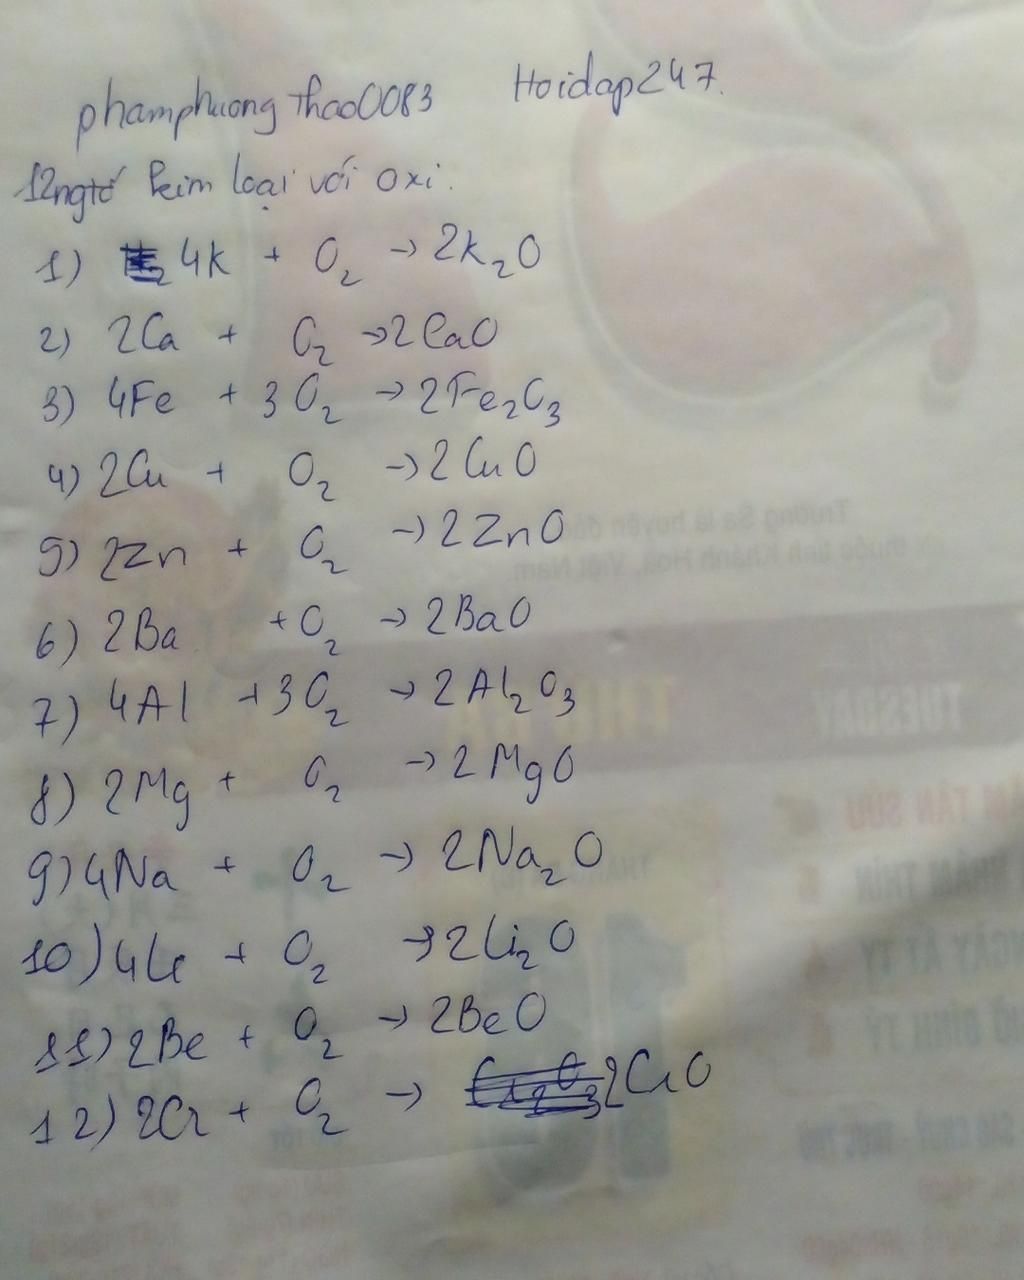 phamphuong Thao0083 Hoidap247.
12ngtố kim loại với oxi.
1) 4K + O2 → 2K2O
2) 2Ca + O2 → 2CaO
3) 4Fe + 3O2 → 2Fe2O3
4) 2Cu + O2 → 2CuO
5) 2Zn + O2 → 2ZnO
6) 2Ba + O2 → 2BaO
7) 4Al + 3O2 → 2Al2O3
8) 2Mg + O2 → 2MgO
9) 4Na + O2 → 2Na2O
10) 4Li + O2 → 2Li2O
11) 2Be + O2 → 2BeO
12) 2Cr + O2 → 2CrO
Trường Sa là huyện đảo
thuộc tỉnh Khánh Hòa, Việt Nam.
THỨ BA
TUESDAY
TÂN SỬU
NHÂM THÌN
NGÀY ẤT TỴ